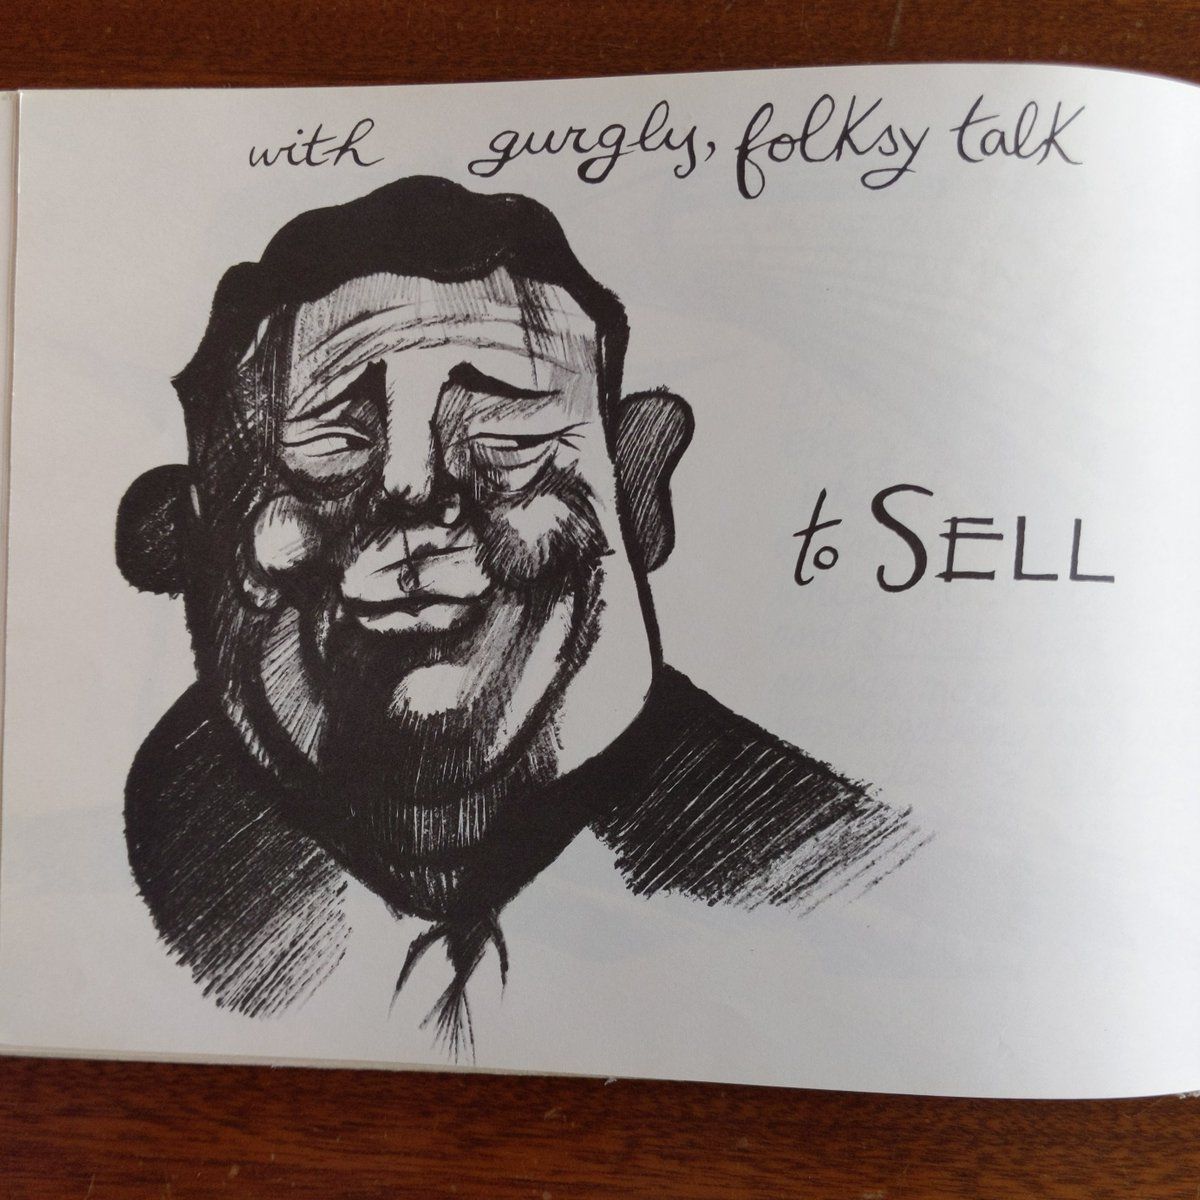 with gurgly, folksy talk
to SELL